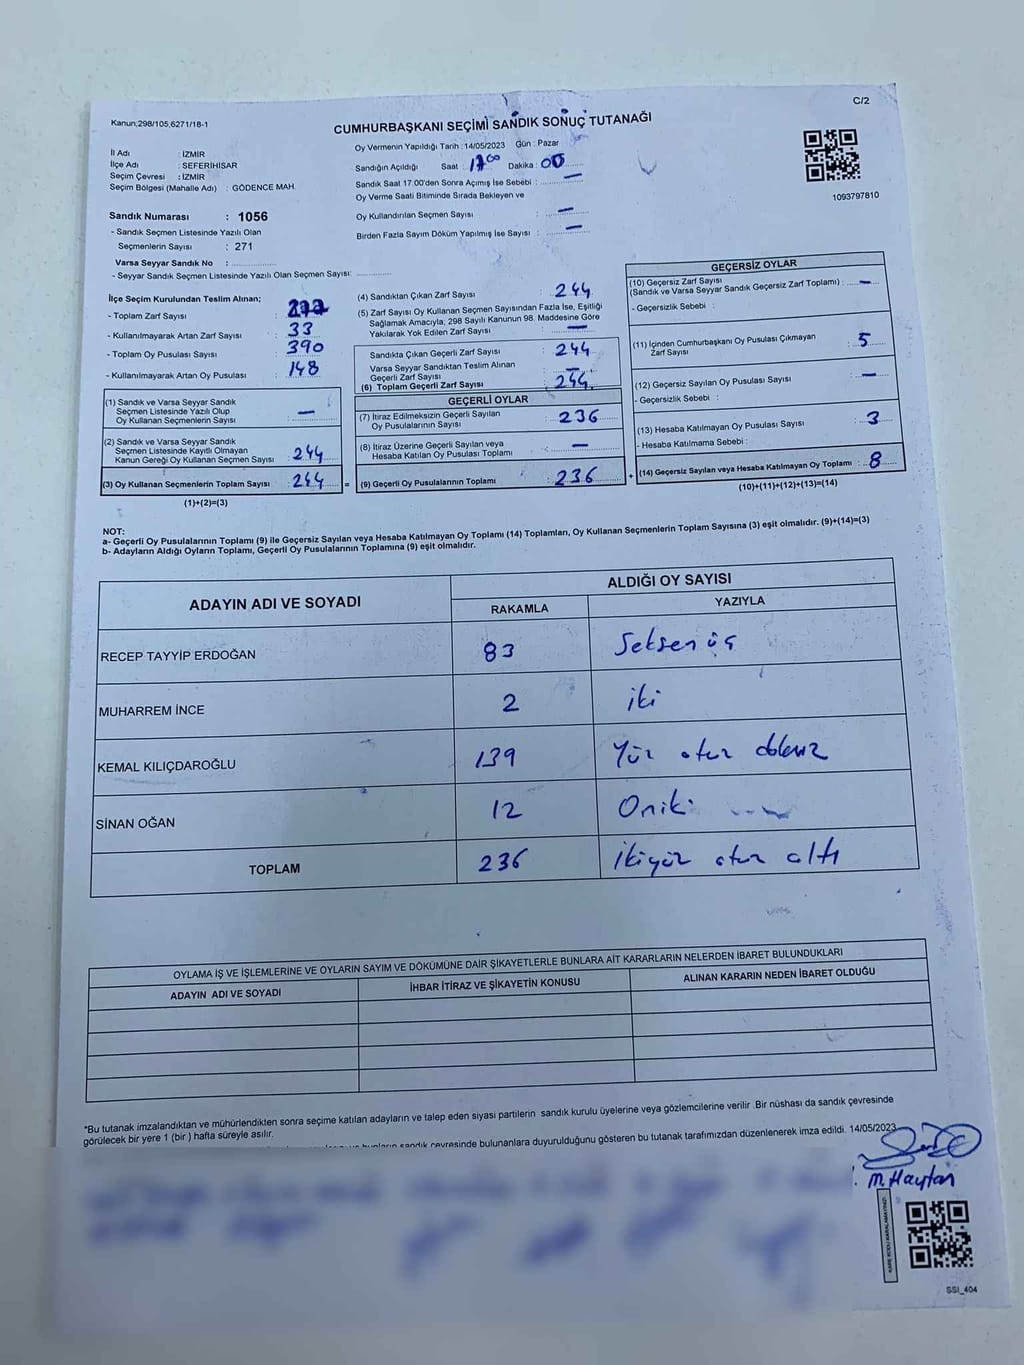 C/2
Kanun;298/105,6271/18-1
CUMHURBAŞKANI SEÇİMİ SANDIK SONUÇ TUTANAĞI
İl Adı : İZMİR
İlçe Adı : SEFERİHİSAR
Seçim Çevresi : İZMİR
Seçim Bölgesi (Mahalle Adı) : GÖDENCE MAH.
Oy Vermenin Yapıldığı Tarih : 14/05/2023 Gün : Pazar
Sandığın Açıldığı Saat : 17⁰⁰ Dakika : 00
Sandık Saat 17.00'den Sonra Açımış İse Sebebi : —
Oy Verme Saati Bitiminde Sırada Bekleyen ve
Oy Kullandırılan Seçmen Sayısı : —
Birden Fazla Sayım Döküm Yapılmış İse Sayısı : —
1093797810
Sandık Numarası : 1056
- Sandık Seçmen Listesinde Yazılı Olan
Seçmenlerin Sayısı : 271
Varsa Seyyar Sandık No :
- Seyyar Sandık Seçmen Listesinde Yazılı Olan Seçmen Sayısı:
İlçe Seçim Kurulundan Teslim Alınan;
- Toplam Zarf Sayısı :
- Kullanılmayarak Artan Zarf Sayısı : 33
- Toplam Oy Pusulası Sayısı : 390
- Kullanılmayarak Artan Oy Pusulası : 148
(1) Sandık ve Varsa Seyyar Sandık
Seçmen Listesinde Yazılı Olup
Oy Kullanan Seçmenlerin Sayısı : —
(2) Sandık ve Varsa Seyyar Sandık
Seçmen Listesinde Kayıtlı Olmayan
Kanun Gereği Oy Kullanan Seçmen Sayısı : 244
(3) Oy Kullanan Seçmenlerin Toplam Sayısı : 244 =
(1)+(2)=(3)
(4) Sandıktan Çıkan Zarf Sayısı : 244
(5) Zarf Sayısı Oy Kullanan Seçmen Sayısından Fazla İse, Eşitliği
Sağlamak Amacıyla, 298 Sayılı Kanunun 98. Maddesine Göre
Yakılarak Yok Edilen Zarf Sayısı : —
Sandıkta Çıkan Geçerli Zarf Sayısı : 244
Varsa Seyyar Sandıktan Teslim Alınan
Geçerli Zarf Sayısı : —
(6) Toplam Geçerli Zarf Sayısı : 244
GEÇERLİ OYLAR
(7) İtiraz Edilmeksizin Geçerli Sayılan
Oy Pusulalarının Sayısı : 236
(8) İtiraz Üzerine Geçerli Sayılan veya
Hesaba Katılan Oy Pusulası Toplamı : —
(9) Geçerli Oy Pusulalarının Toplamı : 236 +
GEÇERSİZ OYLAR
(10) Geçersiz Zarf Sayısı
(Sandık ve Varsa Seyyar Sandık Geçersiz Zarf Toplamı) : —
- Geçersizlik Sebebi :
(11) İçinden Cumhurbaşkanı Oy Pusulası Çıkmayan
Zarf Sayısı : 5
(12) Geçersiz Sayılan Oy Pusulası Sayısı : —
- Geçersizlik Sebebi :
(13) Hesaba Katılmayan Oy Pusulası Sayısı : 3
- Hesaba Katılmama Sebebi :
(14) Geçersiz Sayılan veya Hesaba Katılmayan Oy Toplamı : 8
(10)+(11)+(12)+(13)=(14)
NOT:
a- Geçerli Oy Pusulalarının Toplamı (9) ile Geçersiz Sayılan veya Hesaba Katılmayan Oy Toplamı (14) Toplamları, Oy Kullanan Seçmenlerin Toplam Sayısına (3) eşit olmalıdır. (9)+(14)=(3)
b- Adayların Aldığı Oyların Toplamı, Geçerli Oy Pusulalarının Toplamına (9) eşit olmalıdır.
ADAYIN ADI VE SOYADI ALDIĞI OY SAYISI
RAKAMLA YAZIYLA
RECEP TAYYİP ERDOĞAN 83 Seksen üç
MUHARREM İNCE 2 iki
KEMAL KILIÇDAROĞLU 139 Yüz otuz dokuz
SİNAN OĞAN 12 Oniki
TOPLAM 236 İkiyüz otuz altı
OYLAMA İŞ VE İŞLEMLERİNE VE OYLARIN SAYIM VE DÖKÜMÜNE DAİR ŞİKAYETLERLE BUNLARA AİT KARARLARIN NELERDEN İBARET BULUNDUKLARI
ADAYIN ADI VE SOYADI İHBAR İTİRAZ VE ŞİKAYETİN KONUSU ALINAN KARARIN NEDEN İBARET OLDUĞU
*Bu tutanak imzalandıktan ve mühürlendikten sonra seçime katılan adayların ve talep eden siyasi partilerin sandık kurulu üyelerine veya gözlemcilerine verilir .Bir nüshası da sandık çevresinde
görülecek bir yere 1 (bir ) hafta süreyle asılır.
sandık çevresinde bulunanlara duyurulduğunu gösteren bu tutanak tarafımızdan düzenlenerek imza edildi. 14/05/2023
M. Haytan
SSI_404